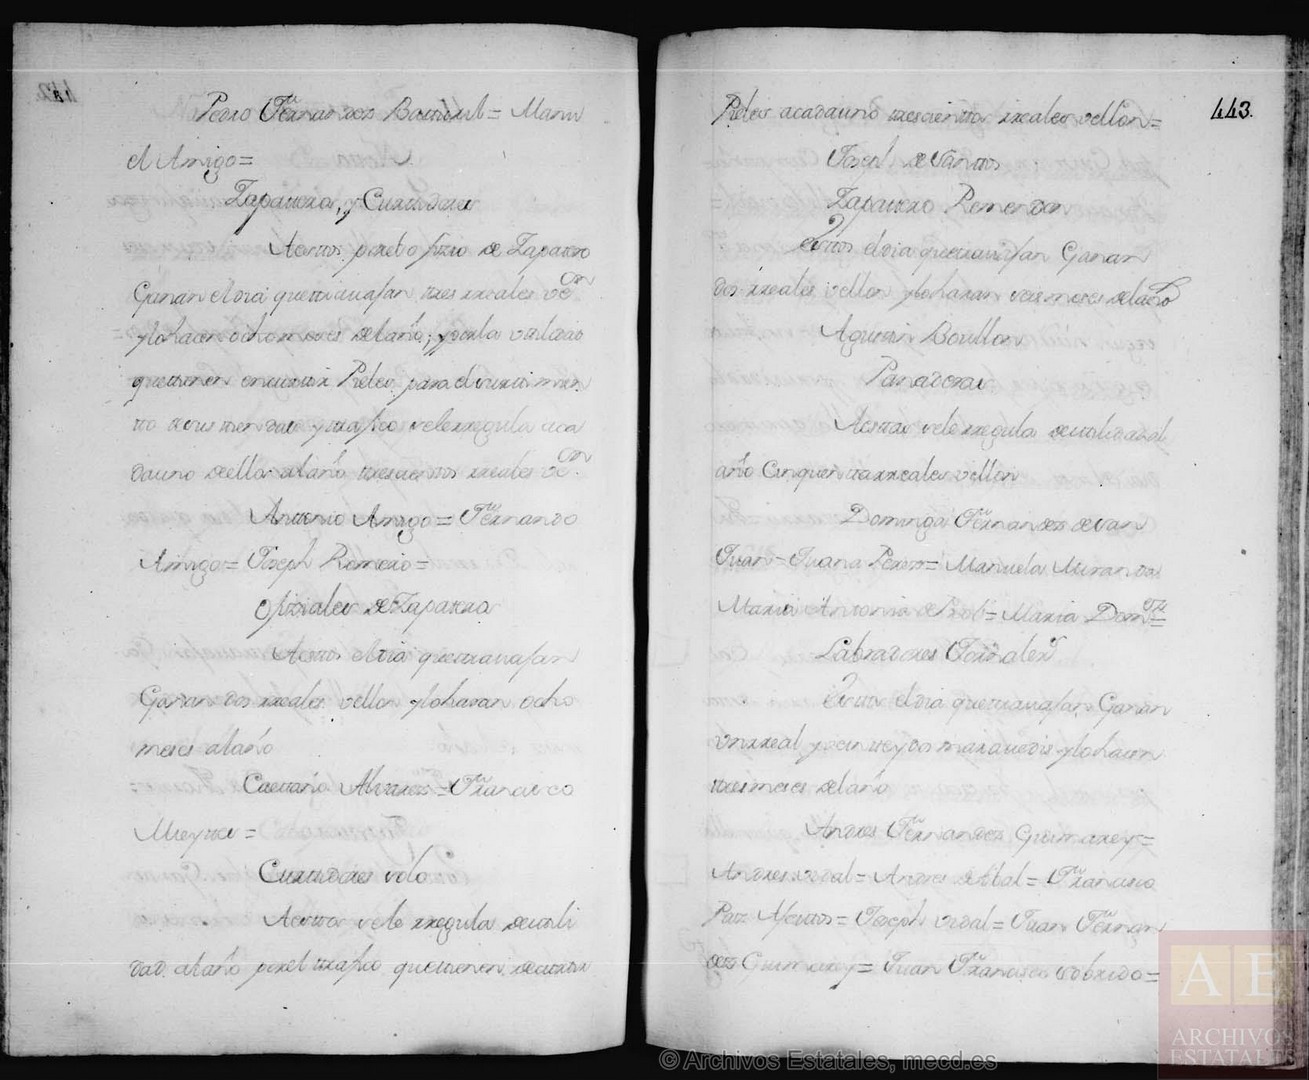 Pedro Fernandez Boutoul= Manu
el Amigo=
Zapateros, y Curtidores
Aestos por el ofizio de Zapatero
Ganan el dia que travajan tres rreales von
y lo hacen ocho meses del año; y por la utilidad
que tienen en curtir Pieles para el surtimien
to de sus tiendas y trafico se le rregula aca
dauno de ellos al año trescientos rreales von
Antonio Amigo= Fernando
Amigo= Joseph Romero=
Ofiziales de Zapatero
Aestos el dia que travajan
Ganan dos rreales vellon y lo haran ocho
meses al año
Caetano Alvarez= Francisco
Meytu=
Curtidores solo
Aestos se le rregula de utili
dad al año por el trafico que tienen de curtir
Pieles acadauno trescientos rreales vellon=
Joseph de Santos
Zapatero Remendon
Este el dia que travajan Ganan
dos rreales vellon y lo haran seis meses del año
Agustin Boullon
Panaderas
Aestas se le rregula de utilidad al
año Cinquenta rreales vellon
Dominga Fernandez de San
Juan= Juana Perez= Manuela Miranda
Maria Antonia de Prob= Maria Domin=
Labradores Jornalers
Estos el dia que travajan Ganan
un rreal y veinte y dos maravedis y lo hacen
tres meses del año
Andres Fernandez Guimarey=
Andres Vidal= Andres de Abal= Francisco
Paz Joseph Vidal= Juan Fernan
dez Guimarey= Juan Francisco Sobrido=
443.
AE
ARCHIVOS
ESTATALES
© Archivos Estatales, mecd.es